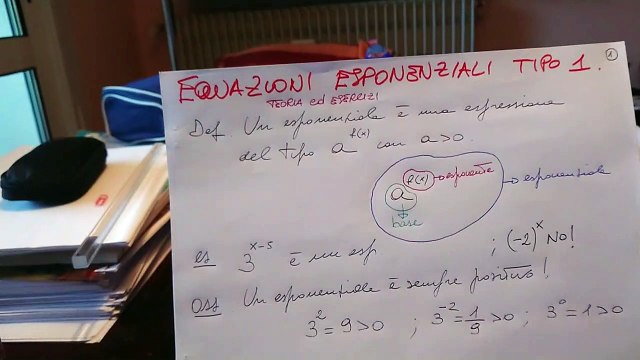 EQUAZIONI ESPONENZIALI TIPO 1. ①
TEORIA ed ESERCIZI
Def. Un esponenziale è una espressione
del tipo a^f(x) con a>0.
f(x) → esponente
a
→ esponenziale
base
es 3^x-5 è un esp ; (-2)^x No!
Oss Un esponenziale è sempre positivo!
3^2=9>0 ; 3^-2=1/9>0 ; 3^0=1>0